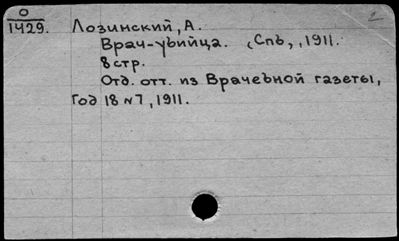 О
1429. Лозинский, А.
Врач-убийца. (Спб., 1911.
8 стр.
Отд. отт. из Врачебной газеты,
Год 18 №7, 1911.